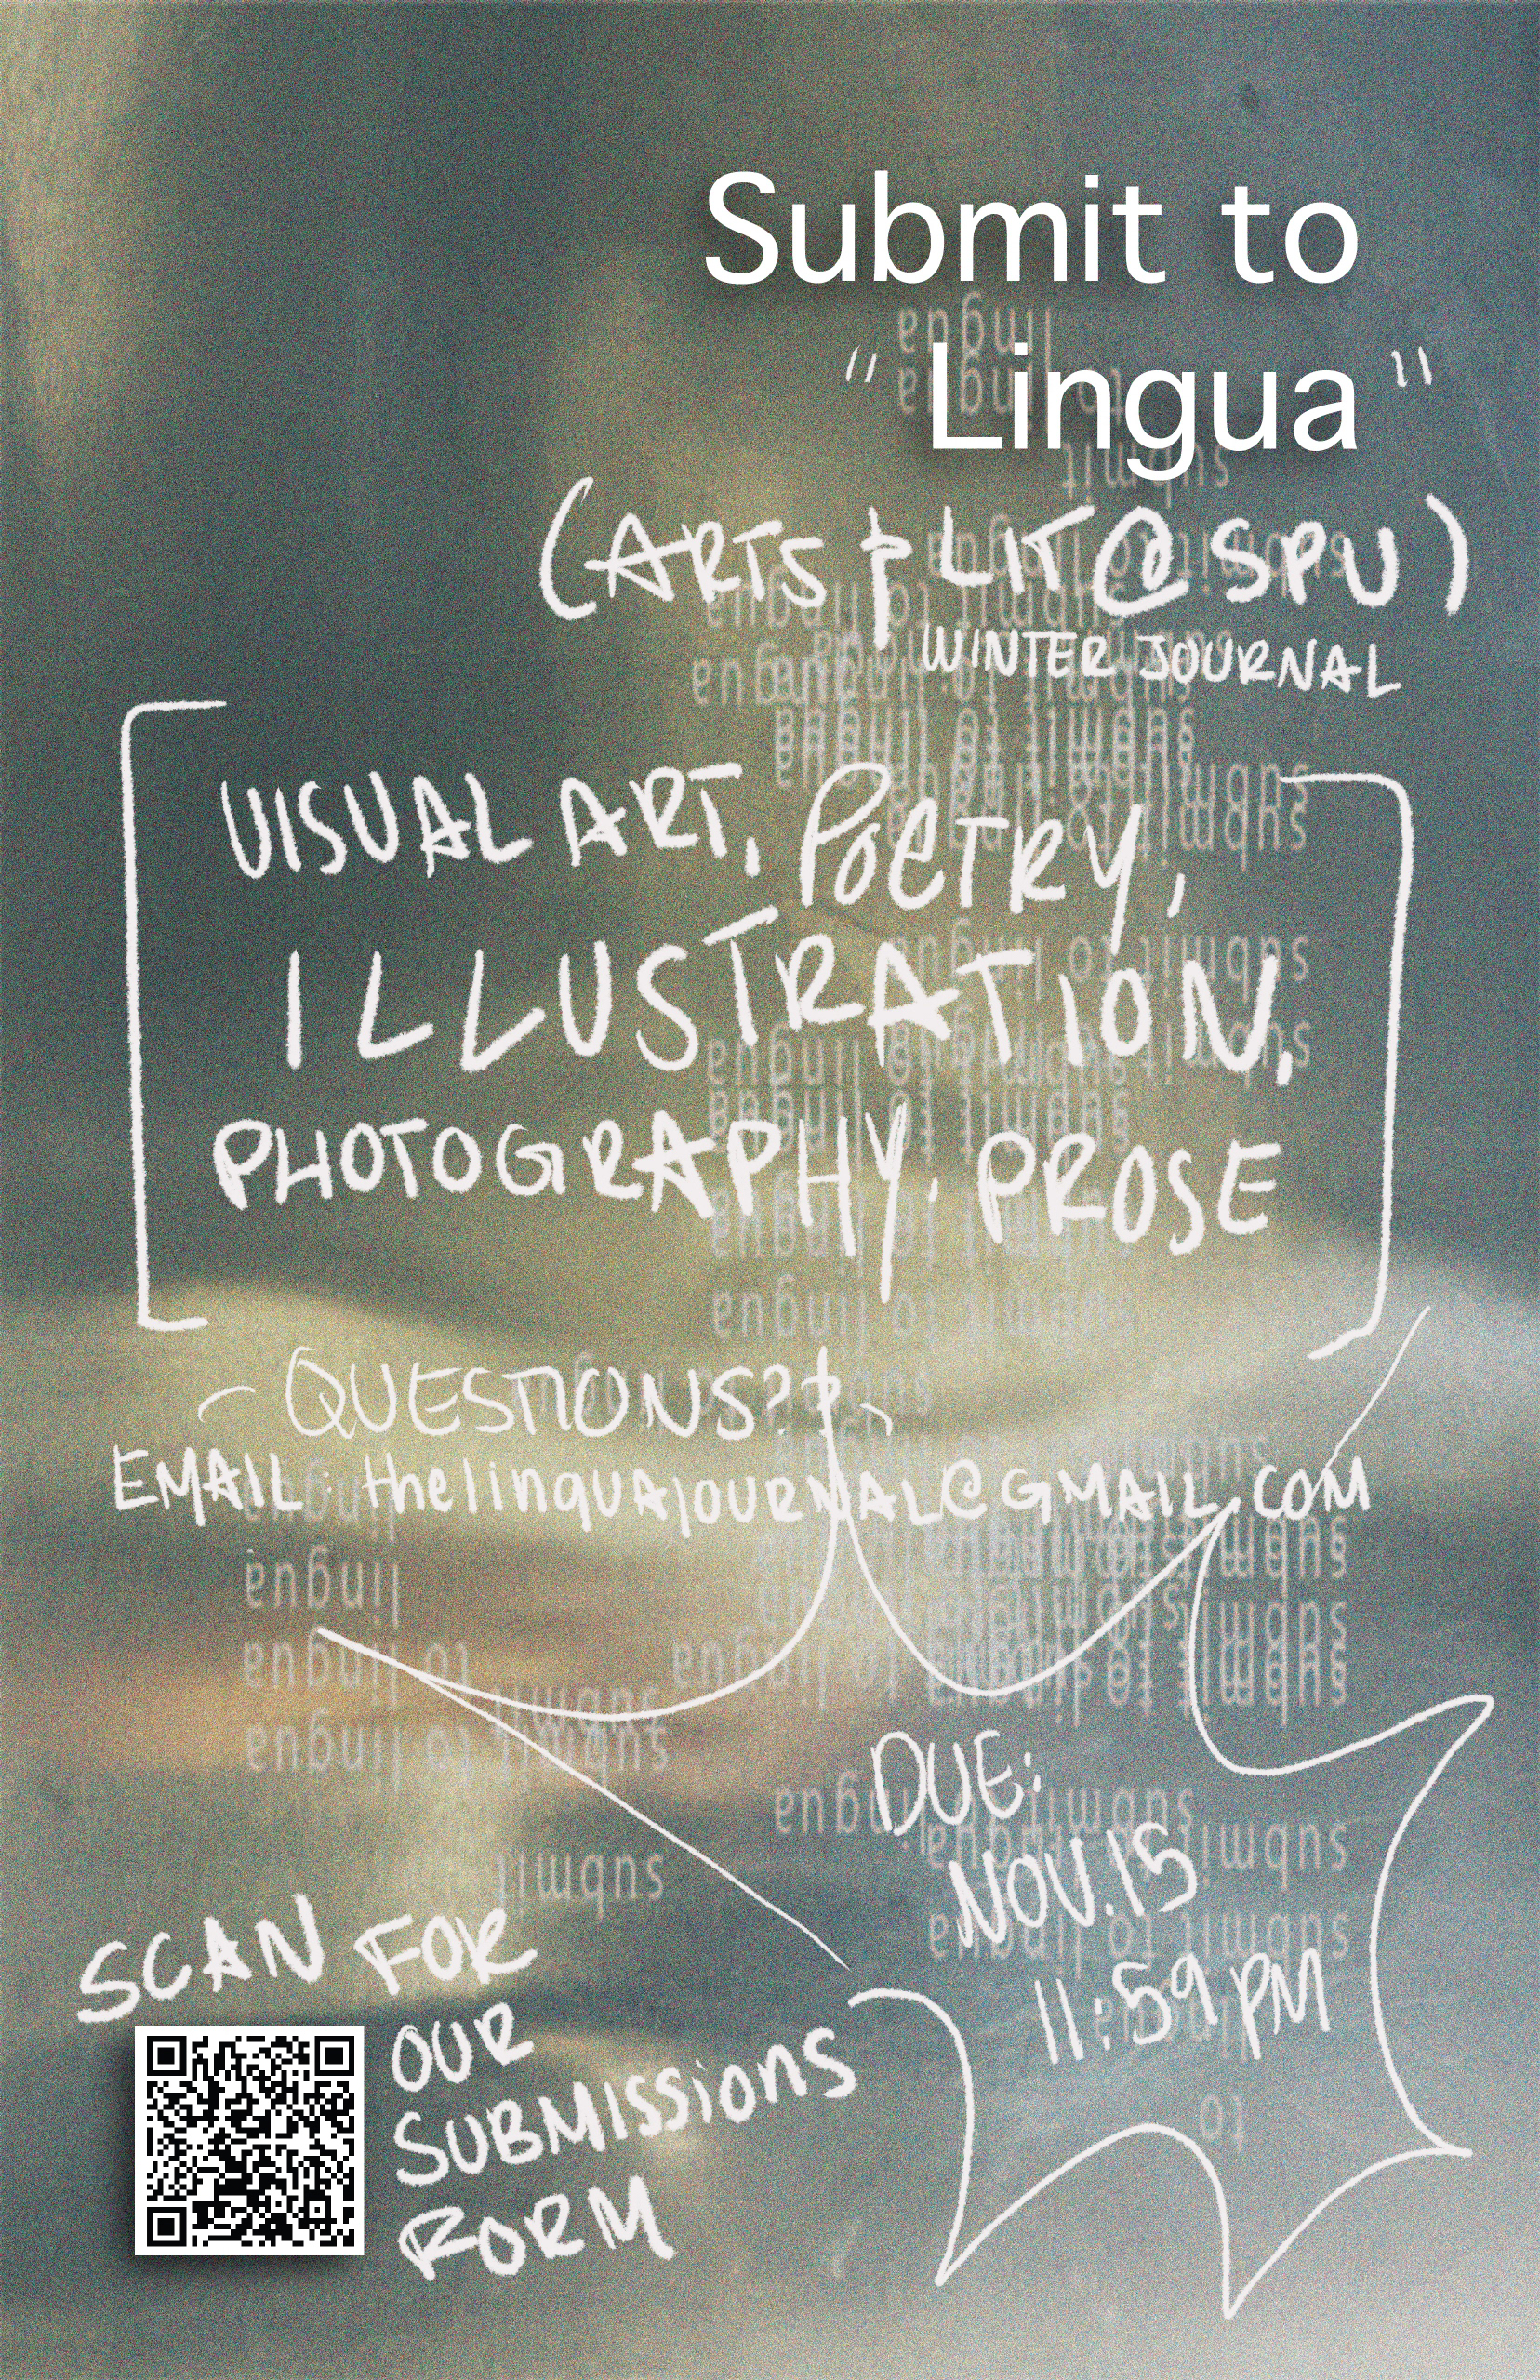 Submit to
"Lingua"
(ARTS & LIT @ SPU)
WINTER JOURNAL
VISUAL ART, POETRY,
ILLUSTRATION,
PHOTOGRAPHY, PROSE
QUESTIONS?
EMAIL: thelinguajournal@GMAIL.COM
DUE:
NOV. 15
11:59 PM
SCAN FOR
OUR
SUBMISSIONS
FORM